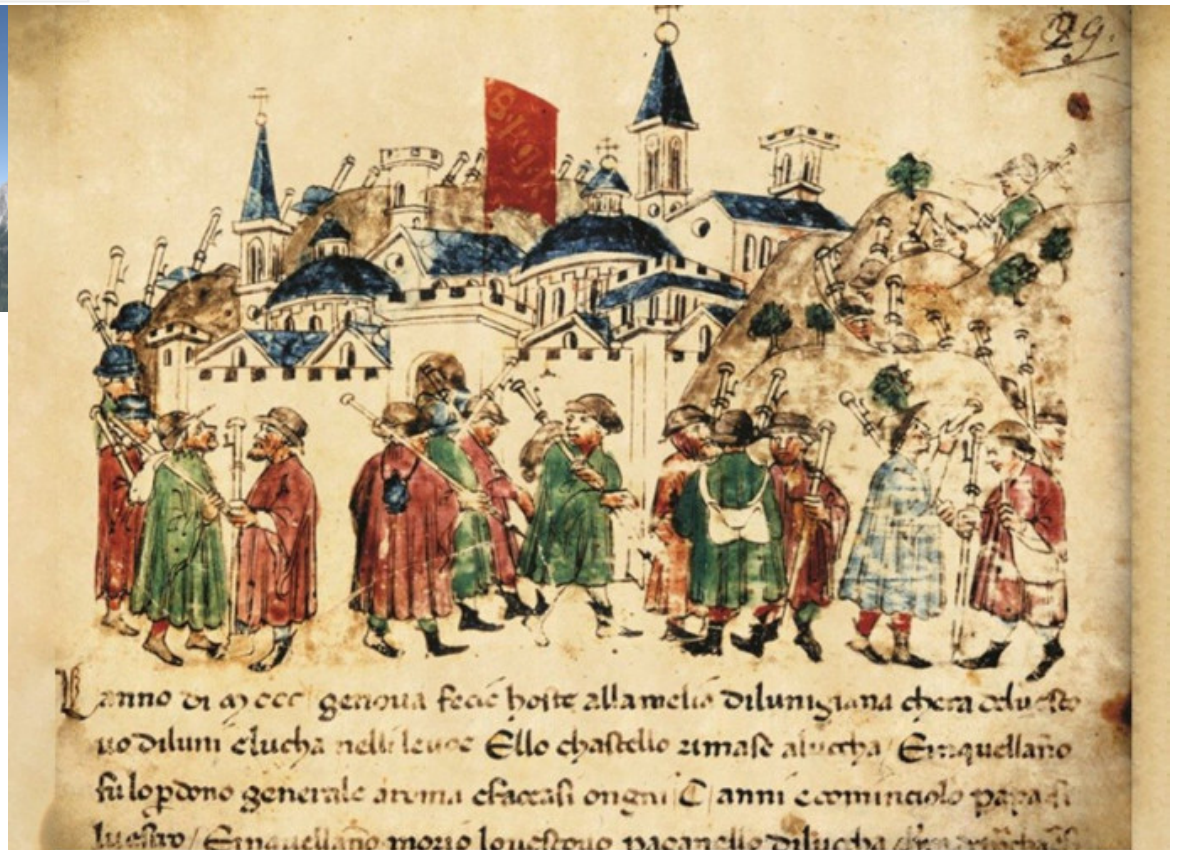 29.
Lanno di mccc genova fecie hoste allamelia dilunigiana chera deluesco
uo diluni elucha nelli leuoe Ello chastello rimase aluccha Einquellano
fu lo pdono generale aroma efaccasi ongni C anni ecominciolo papa si
luestro / Einquellano morio louescouo paganello diluccha